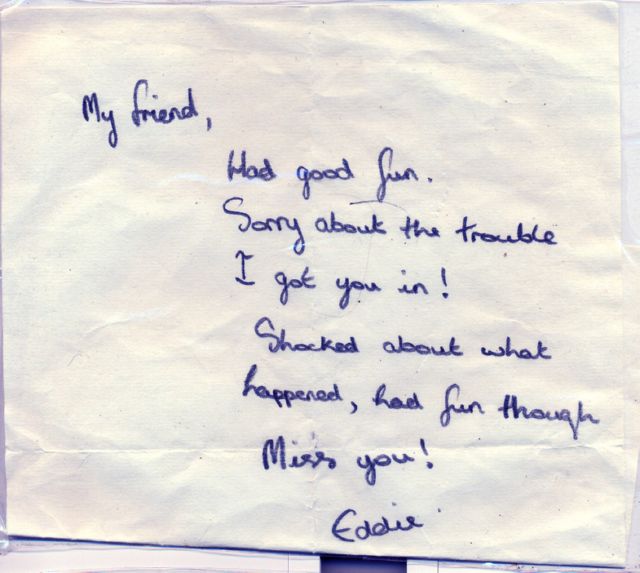 My friend,
Had good fun.
Sorry about the trouble
I got you in!
Shocked about what
happened, had fun though
Miss you!
Eddie